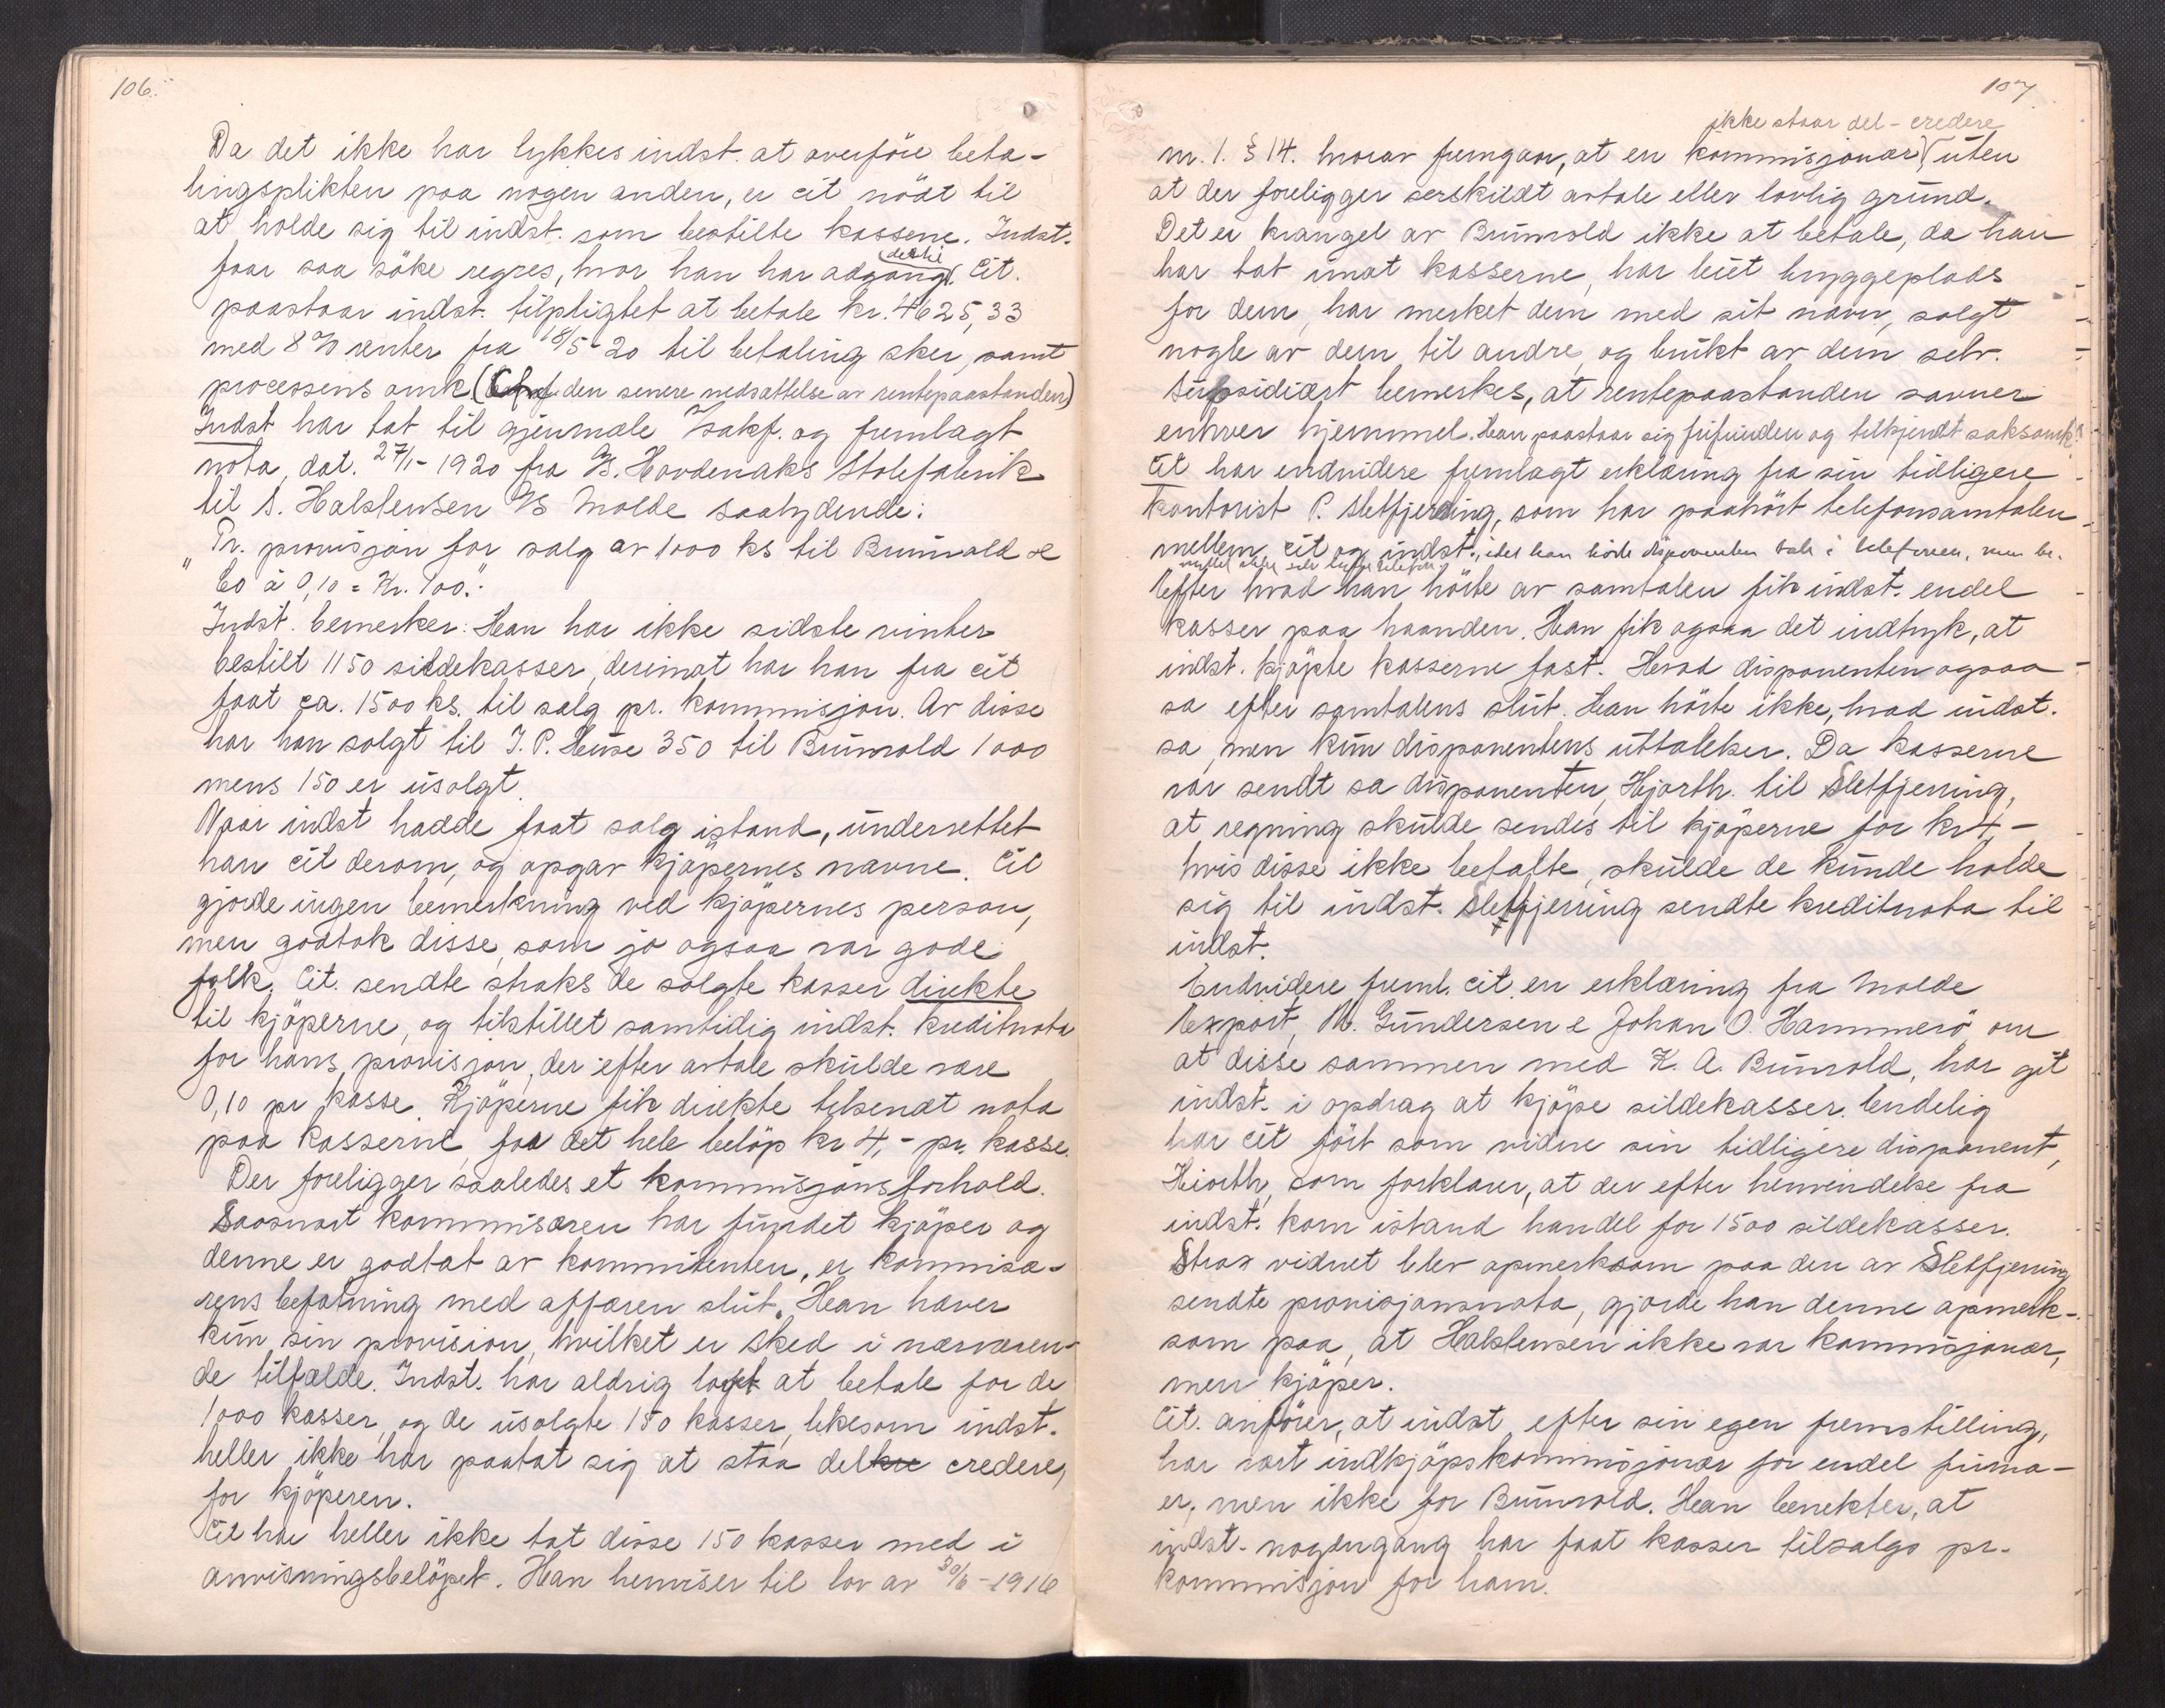 106.
Da det ikke har lykkes indst. at överföre beta-
lingsplikten paa nogen anden, er cit nödt til
at holde sig til indst. som bestilte kassene. Indst.
faar saa söke regres, hvor han har adgang dertil. Cit.
paastaar indst. tilpligtet at betale kr. 4625,33
med 8 % renter fra 18/5-20 til betaling sker, samt
processens omk. (den senere nedsættelse av rentepaastanden)
Indst har tat til gjenmæle i sakf. og fremlagt
nota, dat. 27/1-1920 fra A/S. Hovdenaks Stolefabrik
til S. Halstensen A/S Molde saalydende:
" Pr. provisjon for salg av 1000 ks til Brunvold &
Co à 0,10 = Kr. 100.".
Indst. bemerker: Han har ikke sidste vinter
bestilt 1150 sildekasser, derimot har han fra cit
faat ca. 1500 ks. til salg pr. kommisjon. Av disse
har han solgt til J. P. Huse 350 til Brunvold 1000
mens 150 er usolgt.
Naar indst hadde faat salg istand, underrettet
han cit derom, og opgav kjöpernes navne. Cit
gjorde ingen bemerkning ved kjöpernes person,
men godtok disse, som jo ogsaa var gode
folk. Cit. sendte straks de solgte kasser direkte
til kjöperne, og tilstillet samtidig indst. kreditnota
for hans provisjon, der efter avtale skulde være
0,10 pr kasse. Kjöperne fik direkte tilsendt nota
paa kasserne, for det hele belöp kr 4,- pr. kasse.
Der foreligger saaledes et kommisjonsforhold.
Saasnart kommisæren har fundet kjöper og
denne er godtat av kommitenten, er kommisæ-
rens befatning med affæren slut. Han hæver
kun sin provision, hvilket er sked i nærværen-
de tilfælde. Indst. har aldrig lovet at betale for de
1000 kasser, og de usolgte 150 kasser, likesom indst.
heller ikke har paatat sig at staa del credere
for kjöperen.
Cit har heller ikke tat disse 150 kasser med i
anvisningsbelöpet. Han henviser til lov av 30/6-1916
107.
ikke staar del-credere
nr. 1. § 14. hvorav fremgaar, at en kommisjonær uten
at der foreligger særskildt avtale eller lovlig grund.
Det er krangel av Brunvold ikke at betale, da han
har tat imot kasserne, har leiet bryggeplads
for dem, har merket dem med sit navn, solgt
nogle av dem til andre, og brukt av dem selv.
Subsidiært bemerkes, at rentepaastanden savner
enhver hjemmel. Han paastaar sig frifunden og tilkjendt saksomk.
Cit har endvidere fremlagt erklæring fra sin tidligere
kontorist P. Sletfjerding, som har paahört telefonsamtalen
mellem cit og indst., idet han hörte disponenten tale i telefonen, men be-
nyttet ikke selv telefon.
Efter hvad han hörte av samtalen fik indst. endel
kasser paa haanden. Han fik ogsaa det indtryk, at
indst. kjöpte kasserne fast. Hvad disponenten ogsaa
sa efter samtalens slut. Han hörte ikke, hvad indst.
sa, men kun disponentens uttalelser. Da kasserne
var sendt sa disponenten, Hjorth. til Sletfjerring,
at regning skulde sendes til kjöperne for kr 4,-
hvis disse ikke betalte, skulde de kunde holde
sig til indst. Sletfjerring sendte kreditnota til
indst.
Endvidere freml. cit. en erklæring fra Molde
Export, M. Gundersen & Johan O. Hammerö om
at disse sammen med K. A. Brunvold, har git
indst. i opdrag at kjöpe sildekasser. Endelig
har cit fört som vidne sin tidligere disponent,
Hiorth, som forklarer, at der efter henvendelse fra
indst. kom istand handel for 1500 sildekasser.
Strax vidnet blev opmerksom paa den av Sletfjerring
sendte provisjonsnota, gjorde han denne opmerk-
som paa, at Halstensen ikke var kommisjonær,
men kjöper.
Cit. anförer, at indst, efter sin egen fremstilling,
har vært indkjöpskommisjonær for endel firma-
er, men ikke for Brunvold. Han benekter, at
indst. nogengang har faat kasser tilsalgs pr.
kommisjon for ham.